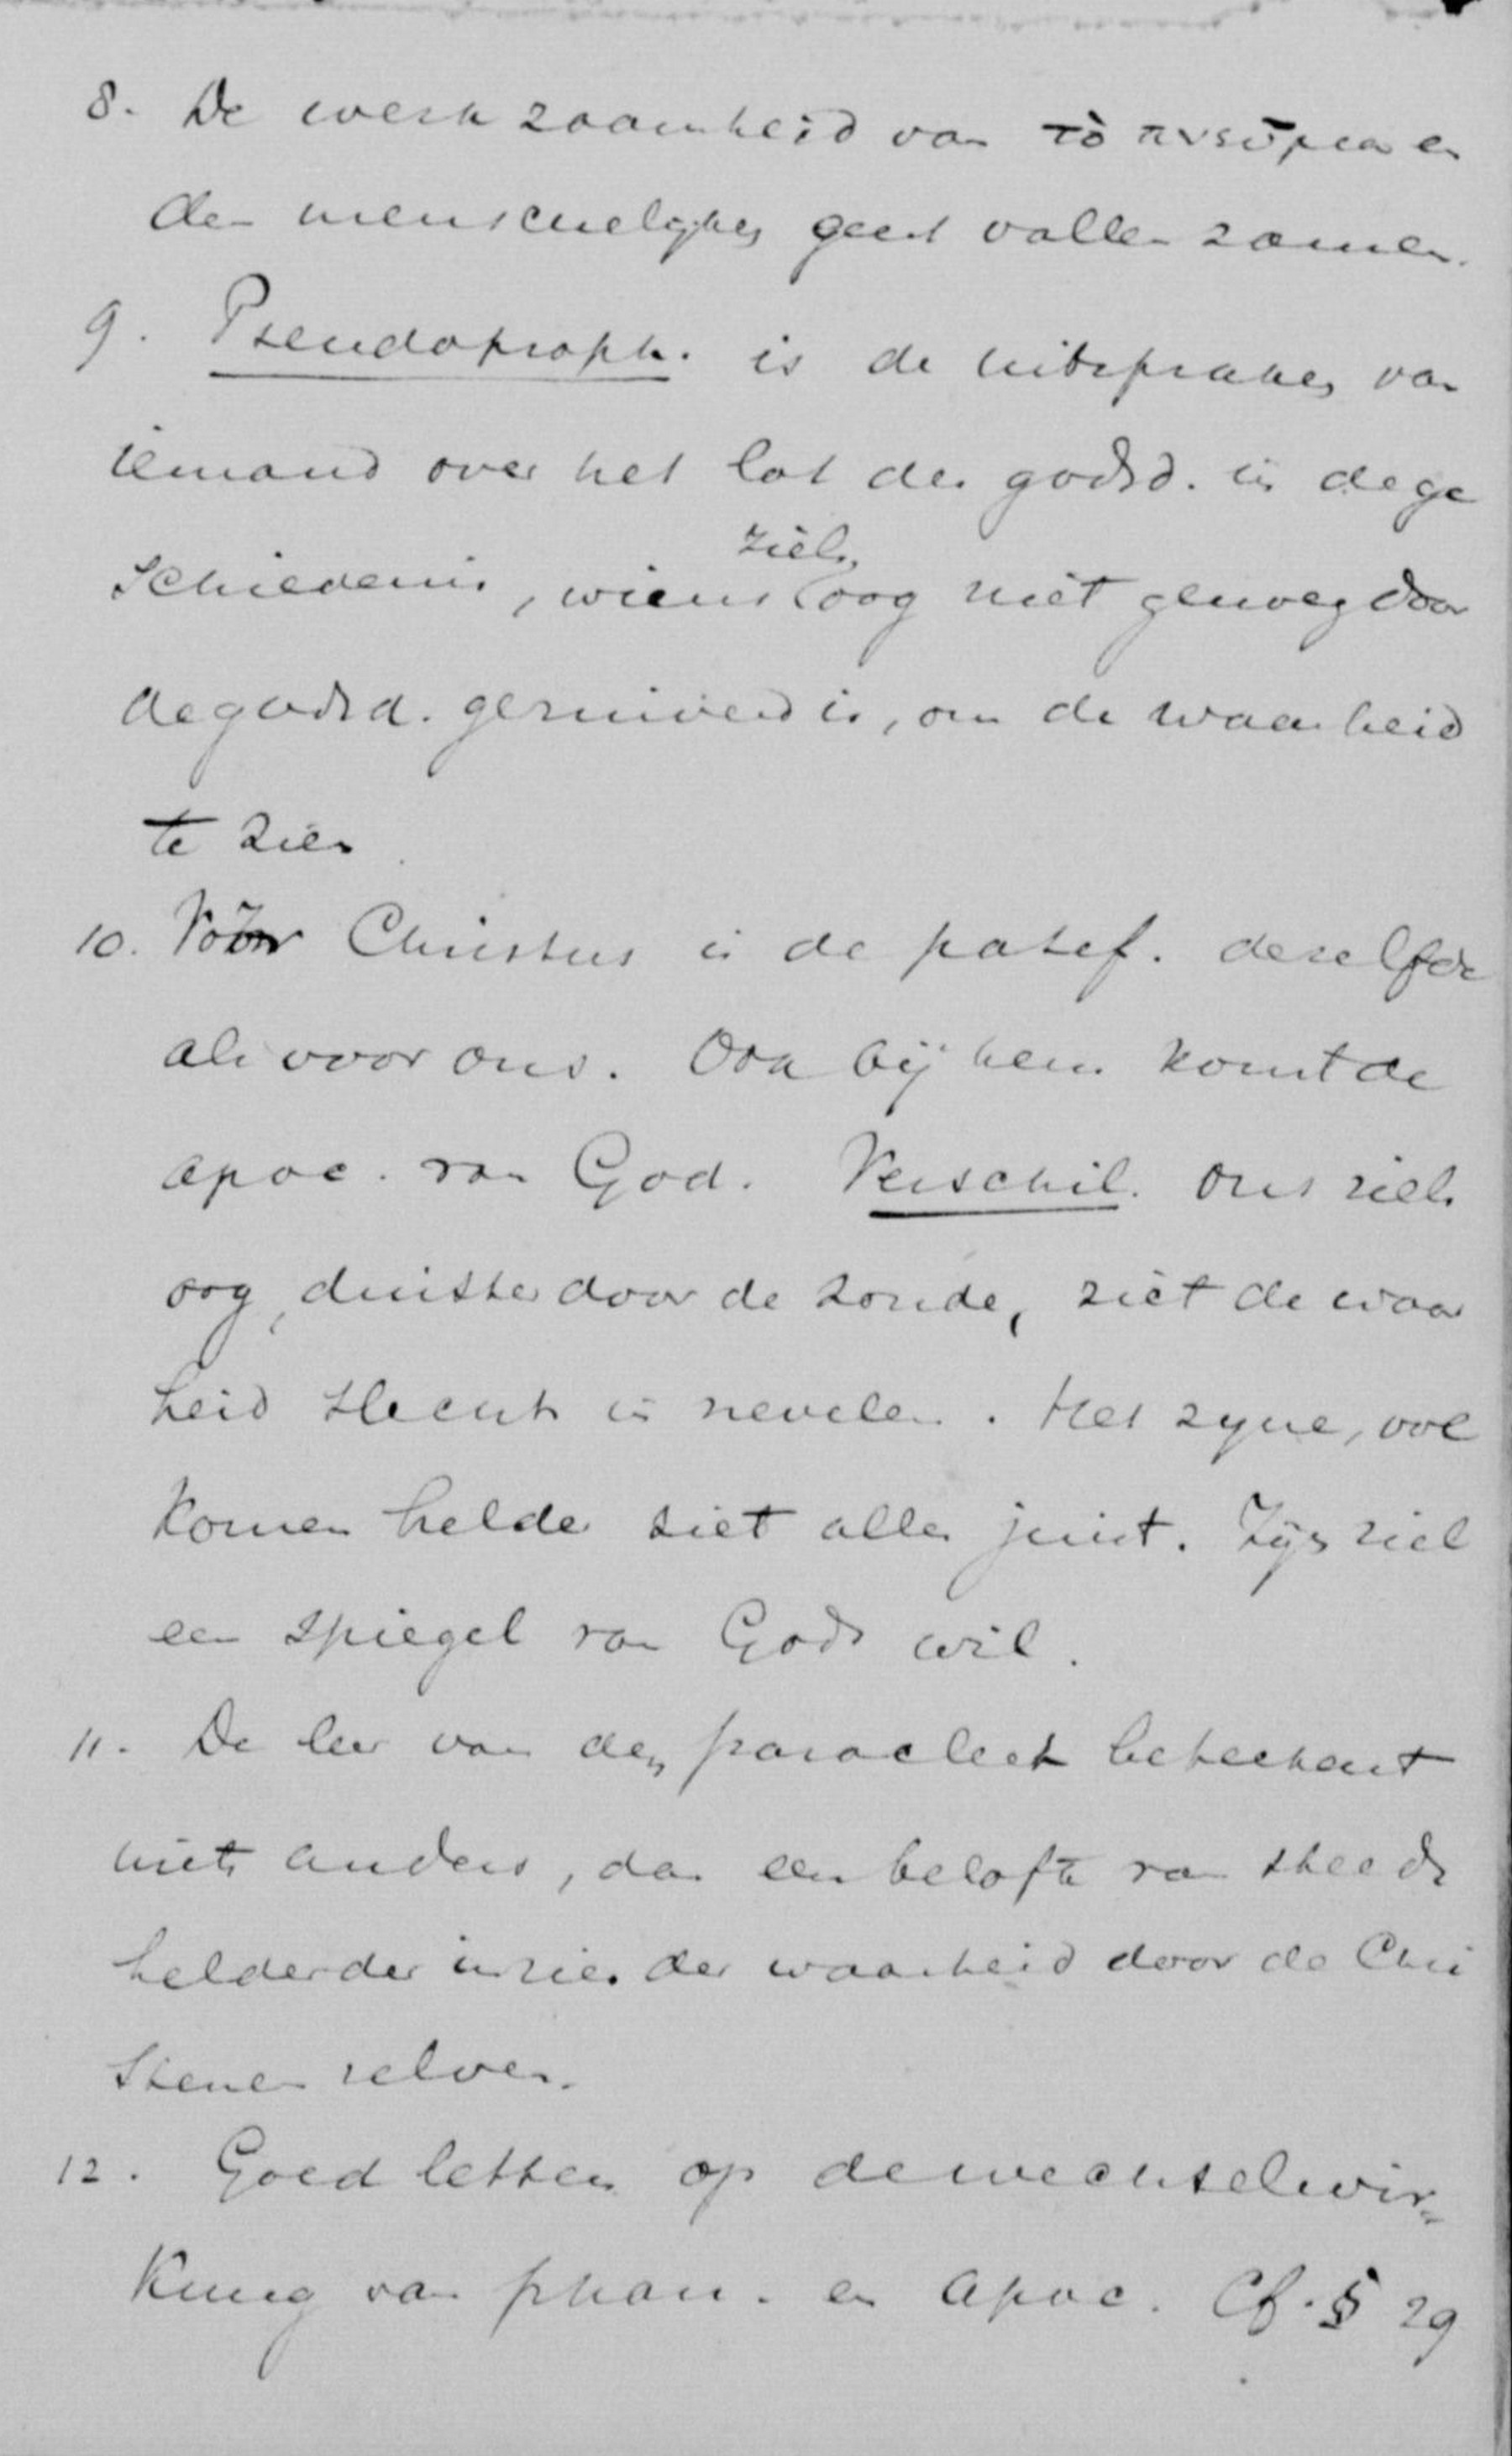 8. De werkzaamheid van τὸ πνεῦμα en
den menschelijken geest vallen samen.
9. Pseudoproph. is de uitspraken van
iemand over het lot der godsd. in de ge
schiedenis, wiens ziels oog niet genoeg door
de godsd. gereinivend is, om de waarheid
te zien
10. Vóór Christus is de patef. dezelfde
als voor ons. Ook bij hem komt de
apoc. van God. Verschil. Ons ziels
oog, duister door de zonde, ziet de waar
heid slechts in nevelen. Het zyne, vol
komen helder ziet alles juist. Zijn ziel
een spiegel van Gods wil.
11. De leer van den paracleet beteekent
niets anders, dan een belofte van steeds
helderder inzien der waarheid door de Chri
stenen zelven.
12. Goed letten op de wechselwir„
kung van phan. en apoc. Cf. § 29